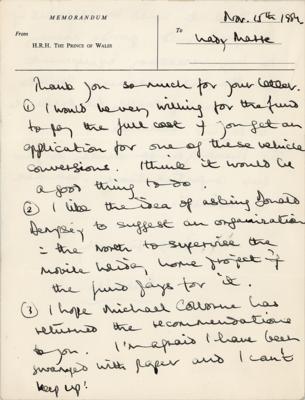 MEMORANDUM
Nov. 15th 1984
From
To
H.R.H. THE PRINCE OF WALES
Lady
Thank you so much for your letter.
① I would be very willing for the fund
to pay the full cost if you get an
application for one of these vehicle
conversions. I think it would be
a good thing to do.
② I like the idea of asking Donald
Dempsey to suggest an organization
in the North to supervise the
mobile home project if
the fund pays for it.
③ I hope Michael Colborne has
returned the recommendations
to you. I'm afraid I have been
swamped with paper and I can't
keep up!